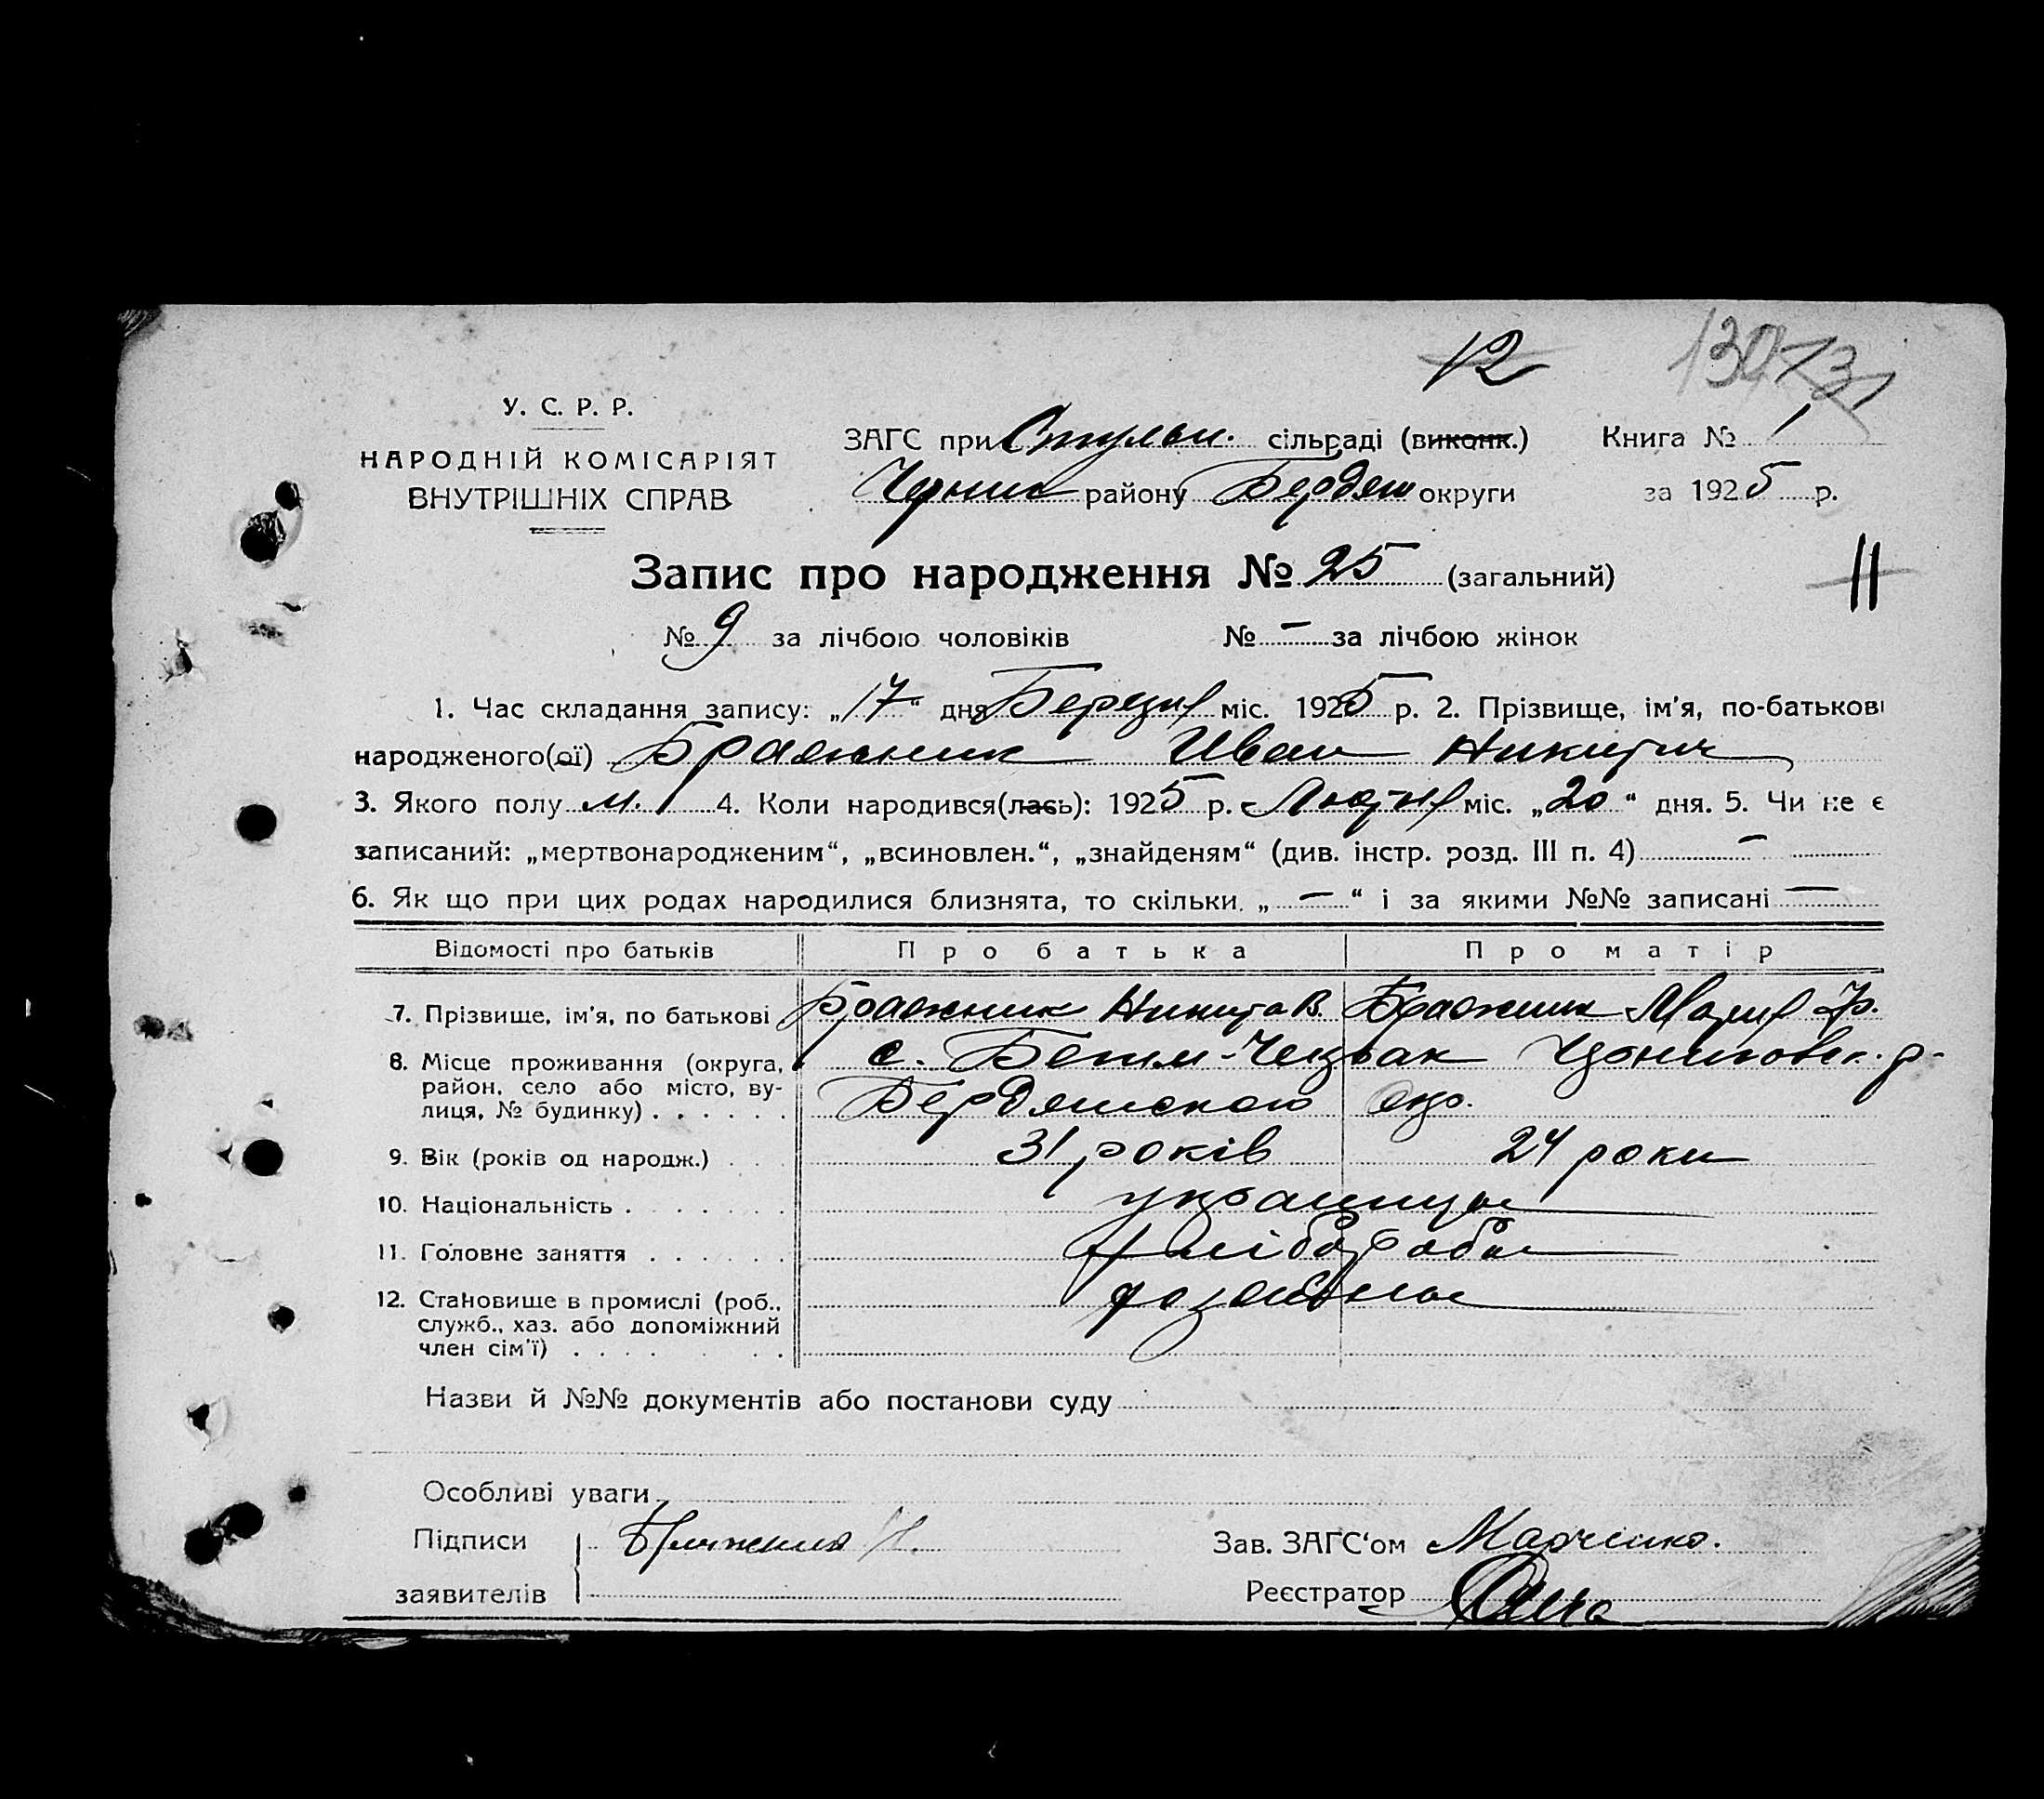 12 130 131
У. С. Р. Р.
НАРОДНІЙ КОМІСАРІЯТ
ВНУТРІШНІХ СПРАВ
ЗАГС при сільраді (виконк.) Книга № 1
району Бердян округи за 1925 р.
Запис про народження № 25 (загальний)
11
№ 9 за лічбою чоловіків № — за лічбою жінок
1. Час складання запису: „17“ дня Березня міс. 1925 р. 2. Прізвище, ім'я, по-батькові
народженого(ої) Бражник Иван Никитич
3. Якого полу м. 4. Коли народився(лась): 1925 р. Лютня міс. „20“ дня. 5. Чи не є
записаний: „мертвонародженим“, „всиновлен.“, „знайденям“ (див. інстр. розд. III п. 4) —
6. Як що при цих родах народилися близнята, то скільки. „ — “ і за якими №№ записані —
Відомості про батьків Про батька Про матір
7. Прізвище, ім'я, по батькові Бражник Никита В. Бражник Мария
8. Місце проживання (округа, с.
район, село або місто, ву- Бердянською окр.
лиця, № будинку)
9. Вік (років од народж.) 31 років 24 роки
10. Національність українці
11. Головне заняття
12. Становище в промислі (роб.,
служб., хаз. або допоміжний
член сім'ї)
Назви й №№ документів або постанови суду
Особливі уваги
Підписи Бражник Н. Зав. ЗАГС'ом Марченко.
заявителів Реєстратор